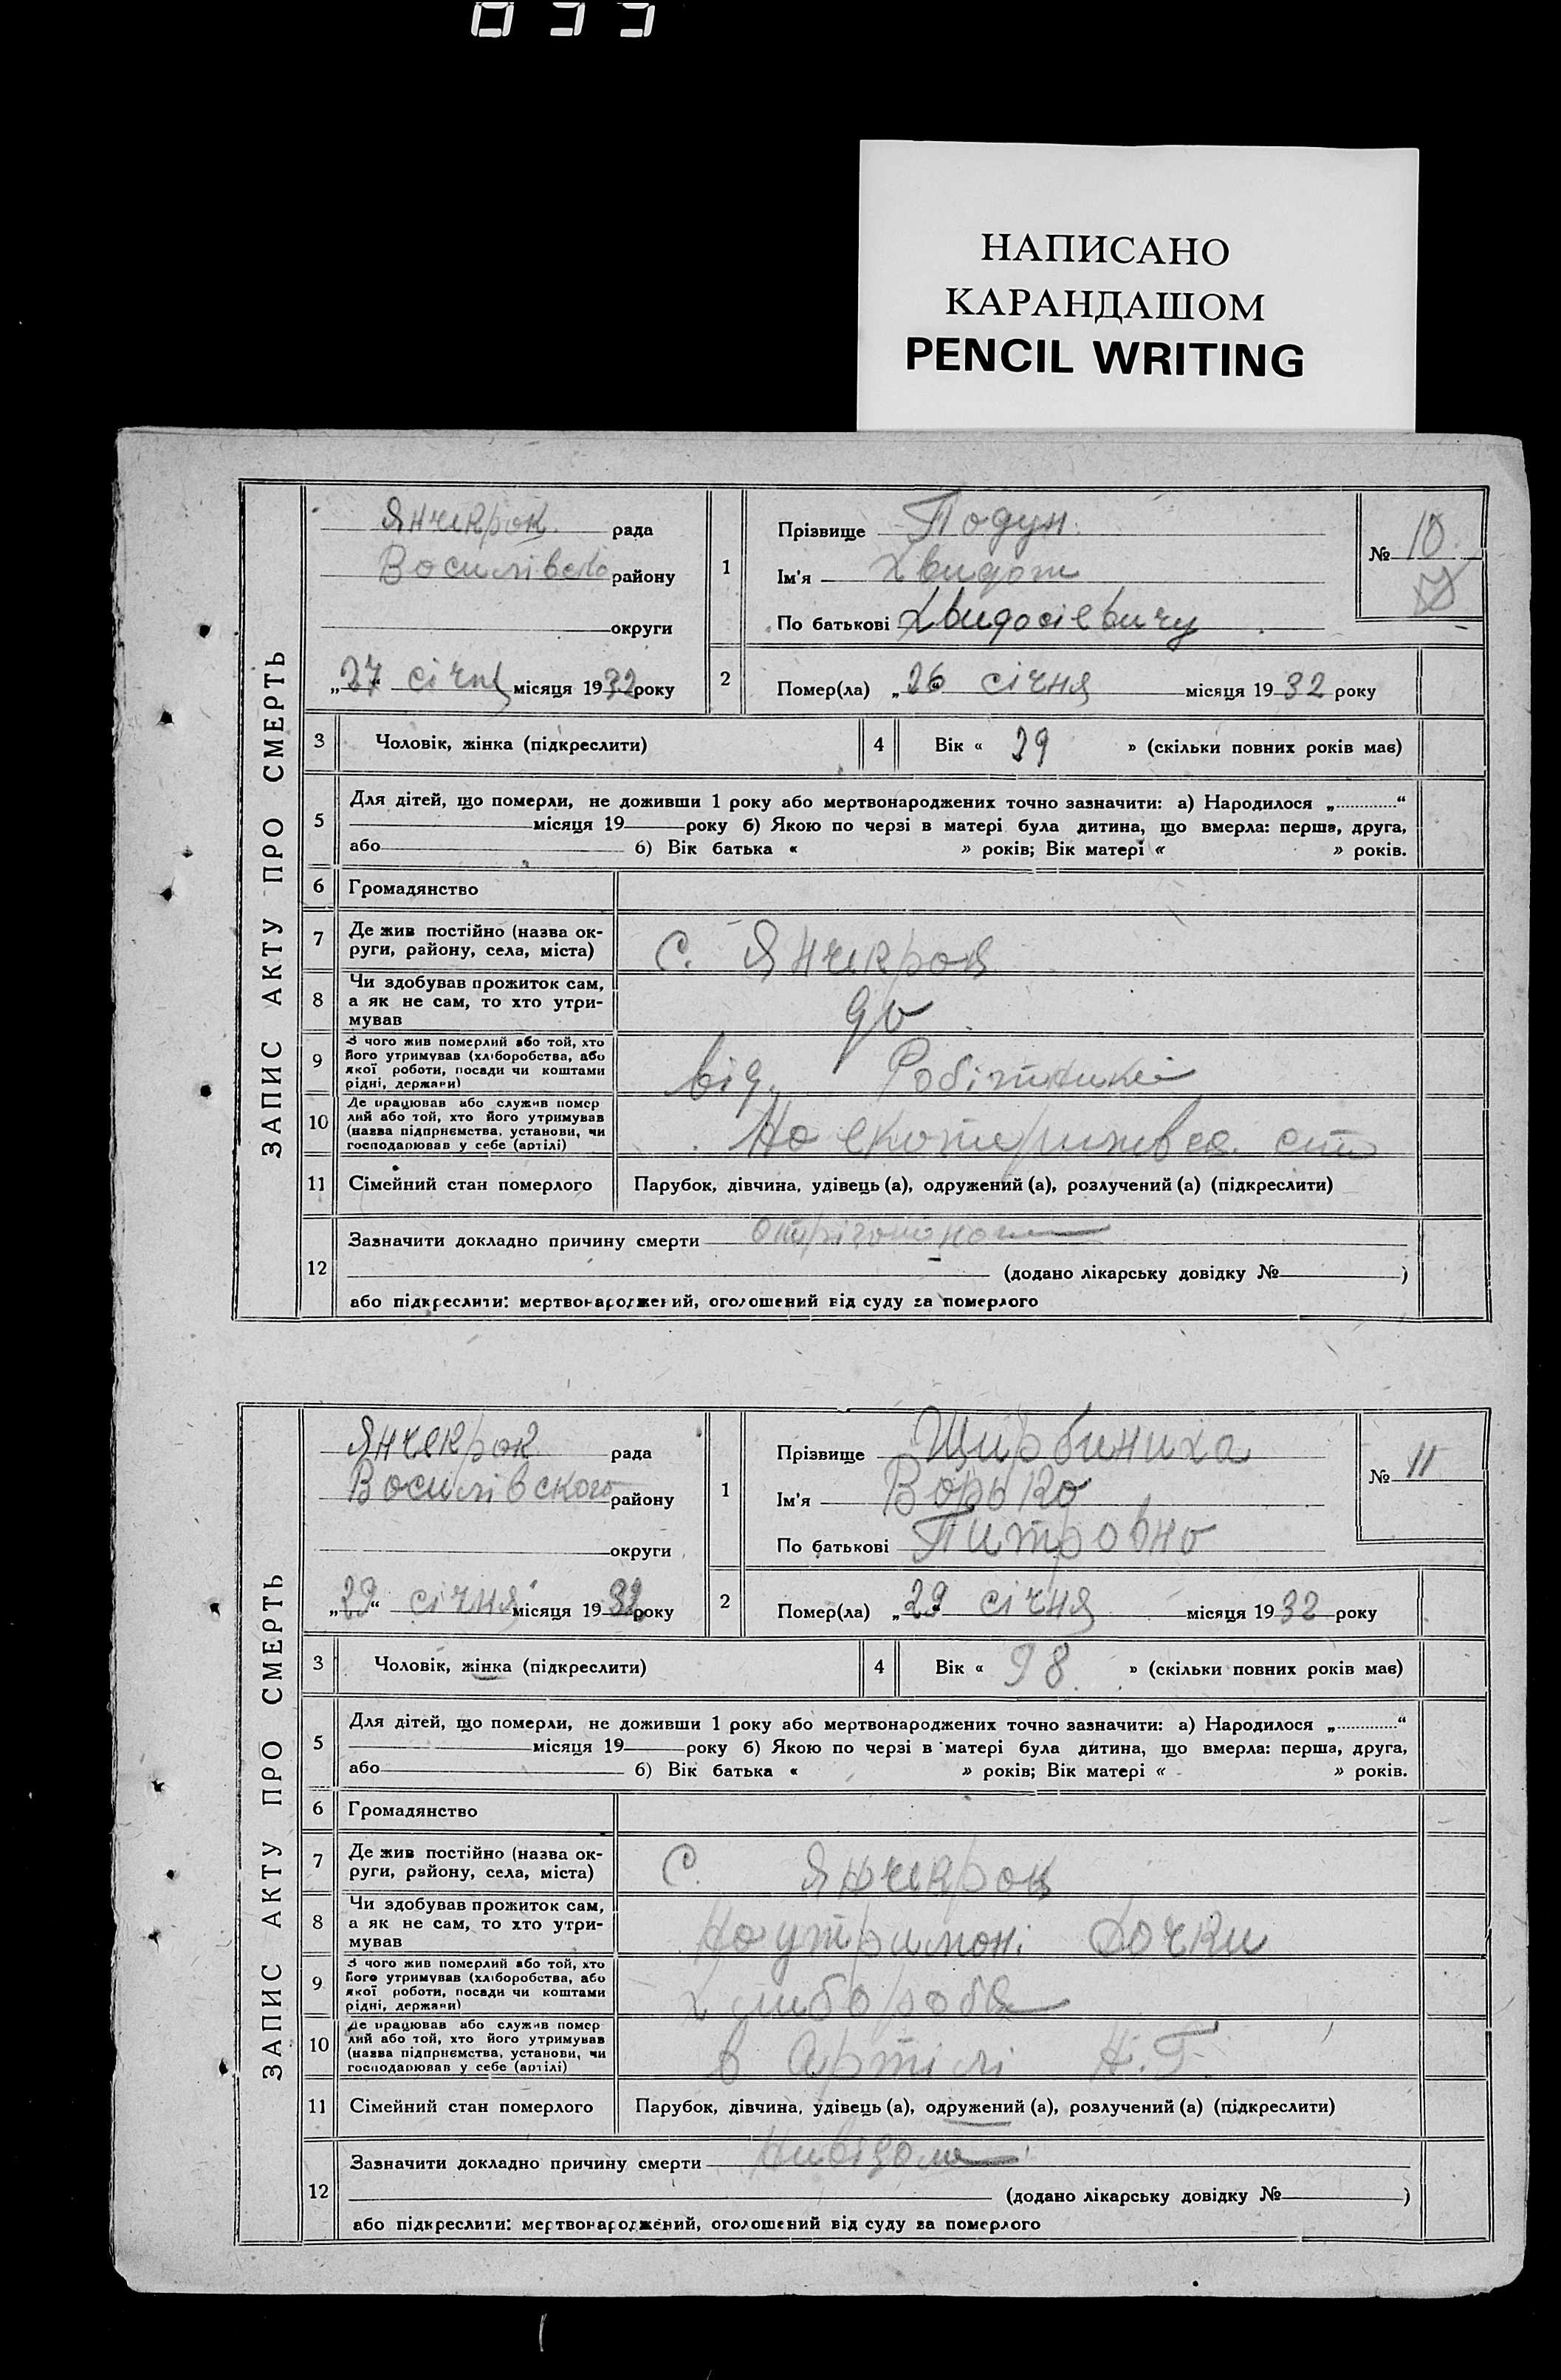 НАПИСАНО
КАРАНДАШОМ
PENCIL WRITING
ЗАПИС АКТУ ПРО СМЕРТЬ
Янчекрок рада
Восилівско району
округи
„27“ січня місяця 1932 року
1
Прізвище Подун
Ім'я Хвидот
По батькові Хвидосієвичу
№ 10
2
Помер(ла) „26“ січня місяця 1932 року
3 Чоловік, жінка (підкреслити)
4 Вік « 29 » (скільки повних років мав)
5 Для дітей, що померли, не доживши 1 року або мертвонароджених точно зазначити: а) Народилося „ “
місяця 19 року б) Якою по черзі в матері була дитина, що вмерла: перша, друга,
або б) Вік батька « » років; Вік матері « » років.
6 Громадянство
7 Де жив постійно (назва ок-
руги, району, села, міста)
С. Янчекрок
8 Чи здобував прожиток сам,
а як не сам, то хто утри-
мував
9 З чого жив померлий або той, хто
його утримував (хліборобства, або
якої роботи, посади чи коштами
рідні, держави)
від. Робітникі
10 Де працював або служив помер
лий або той, хто його утримував
(назва підприємства, установи, чи
господарював у себе (артілі)
На
11 Сімейний стан померлого
Парубок, дівчина, удівець (а), одружений (а), розлучений (а) (підкреслити)
12 Зазначити докладно причину смерти
(додано лікарську довідку № )
або підкреслити: мертвонароджений, оголошений від суду за померлого
ЗАПИС АКТУ ПРО СМЕРТЬ
Янчекрок рада
Восилівского району
округи
„29“ січня місяця 1932 року
1
Прізвище Щирбиниха
Ім'я Ворька
По батькові Питровно
№ 11
2
Помер(ла) „29“ січня місяця 1932 року
3 Чоловік, жінка (підкреслити)
4 Вік « 98 » (скільки повних років мав)
5 Для дітей, що померли, не доживши 1 року або мертвонароджених точно зазначити: а) Народилося „ “
місяця 19 року б) Якою по черзі в матері була дитина, що вмерла: перша, друга,
або б) Вік батька « » років; Вік матері « » років.
6 Громадянство
7 Де жив постійно (назва ок-
руги, району, села, міста)
С. Янчекрок
8 Чи здобував прожиток сам,
а як не сам, то хто утри-
мував
На утримоні дочки
9 З чого жив померлий або той, хто
його утримував (хліборобства, або
якої роботи, посади чи коштами
рідні, держави)
хлибороба
10 Де працював або служив помер
лий або той, хто його утримував
(назва підприємства, установи, чи
господарював у себе (артілі)
в Артілі Н.Г.
11 Сімейний стан померлого
Парубок, дівчина, удівець (а), одружений (а), розлучений (а) (підкреслити)
12 Зазначити докладно причину смерти Нивідома
(додано лікарську довідку № )
або підкреслити: мертвонароджений, оголошений від суду за померлого